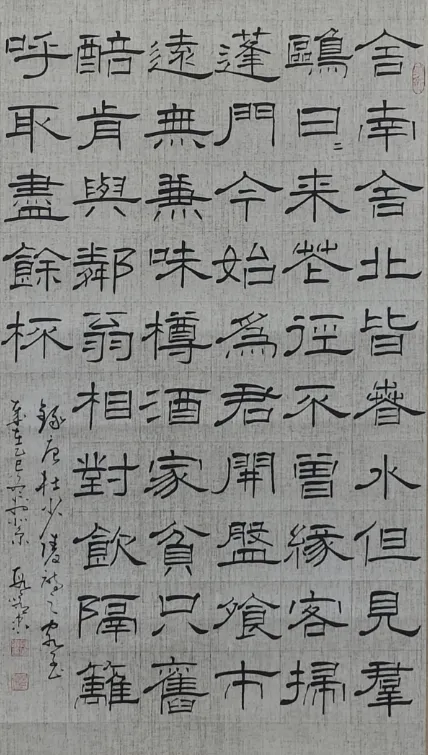 舍南舍北皆春水但見羣
鷗日〻来花徑不曾緣客掃
蓬門今始為君開盤飧市
遠無兼味樽酒家貧只舊
醅肯與鄰翁相對飲隔籬
呼取盡餘杯
錄唐杜少陵詩